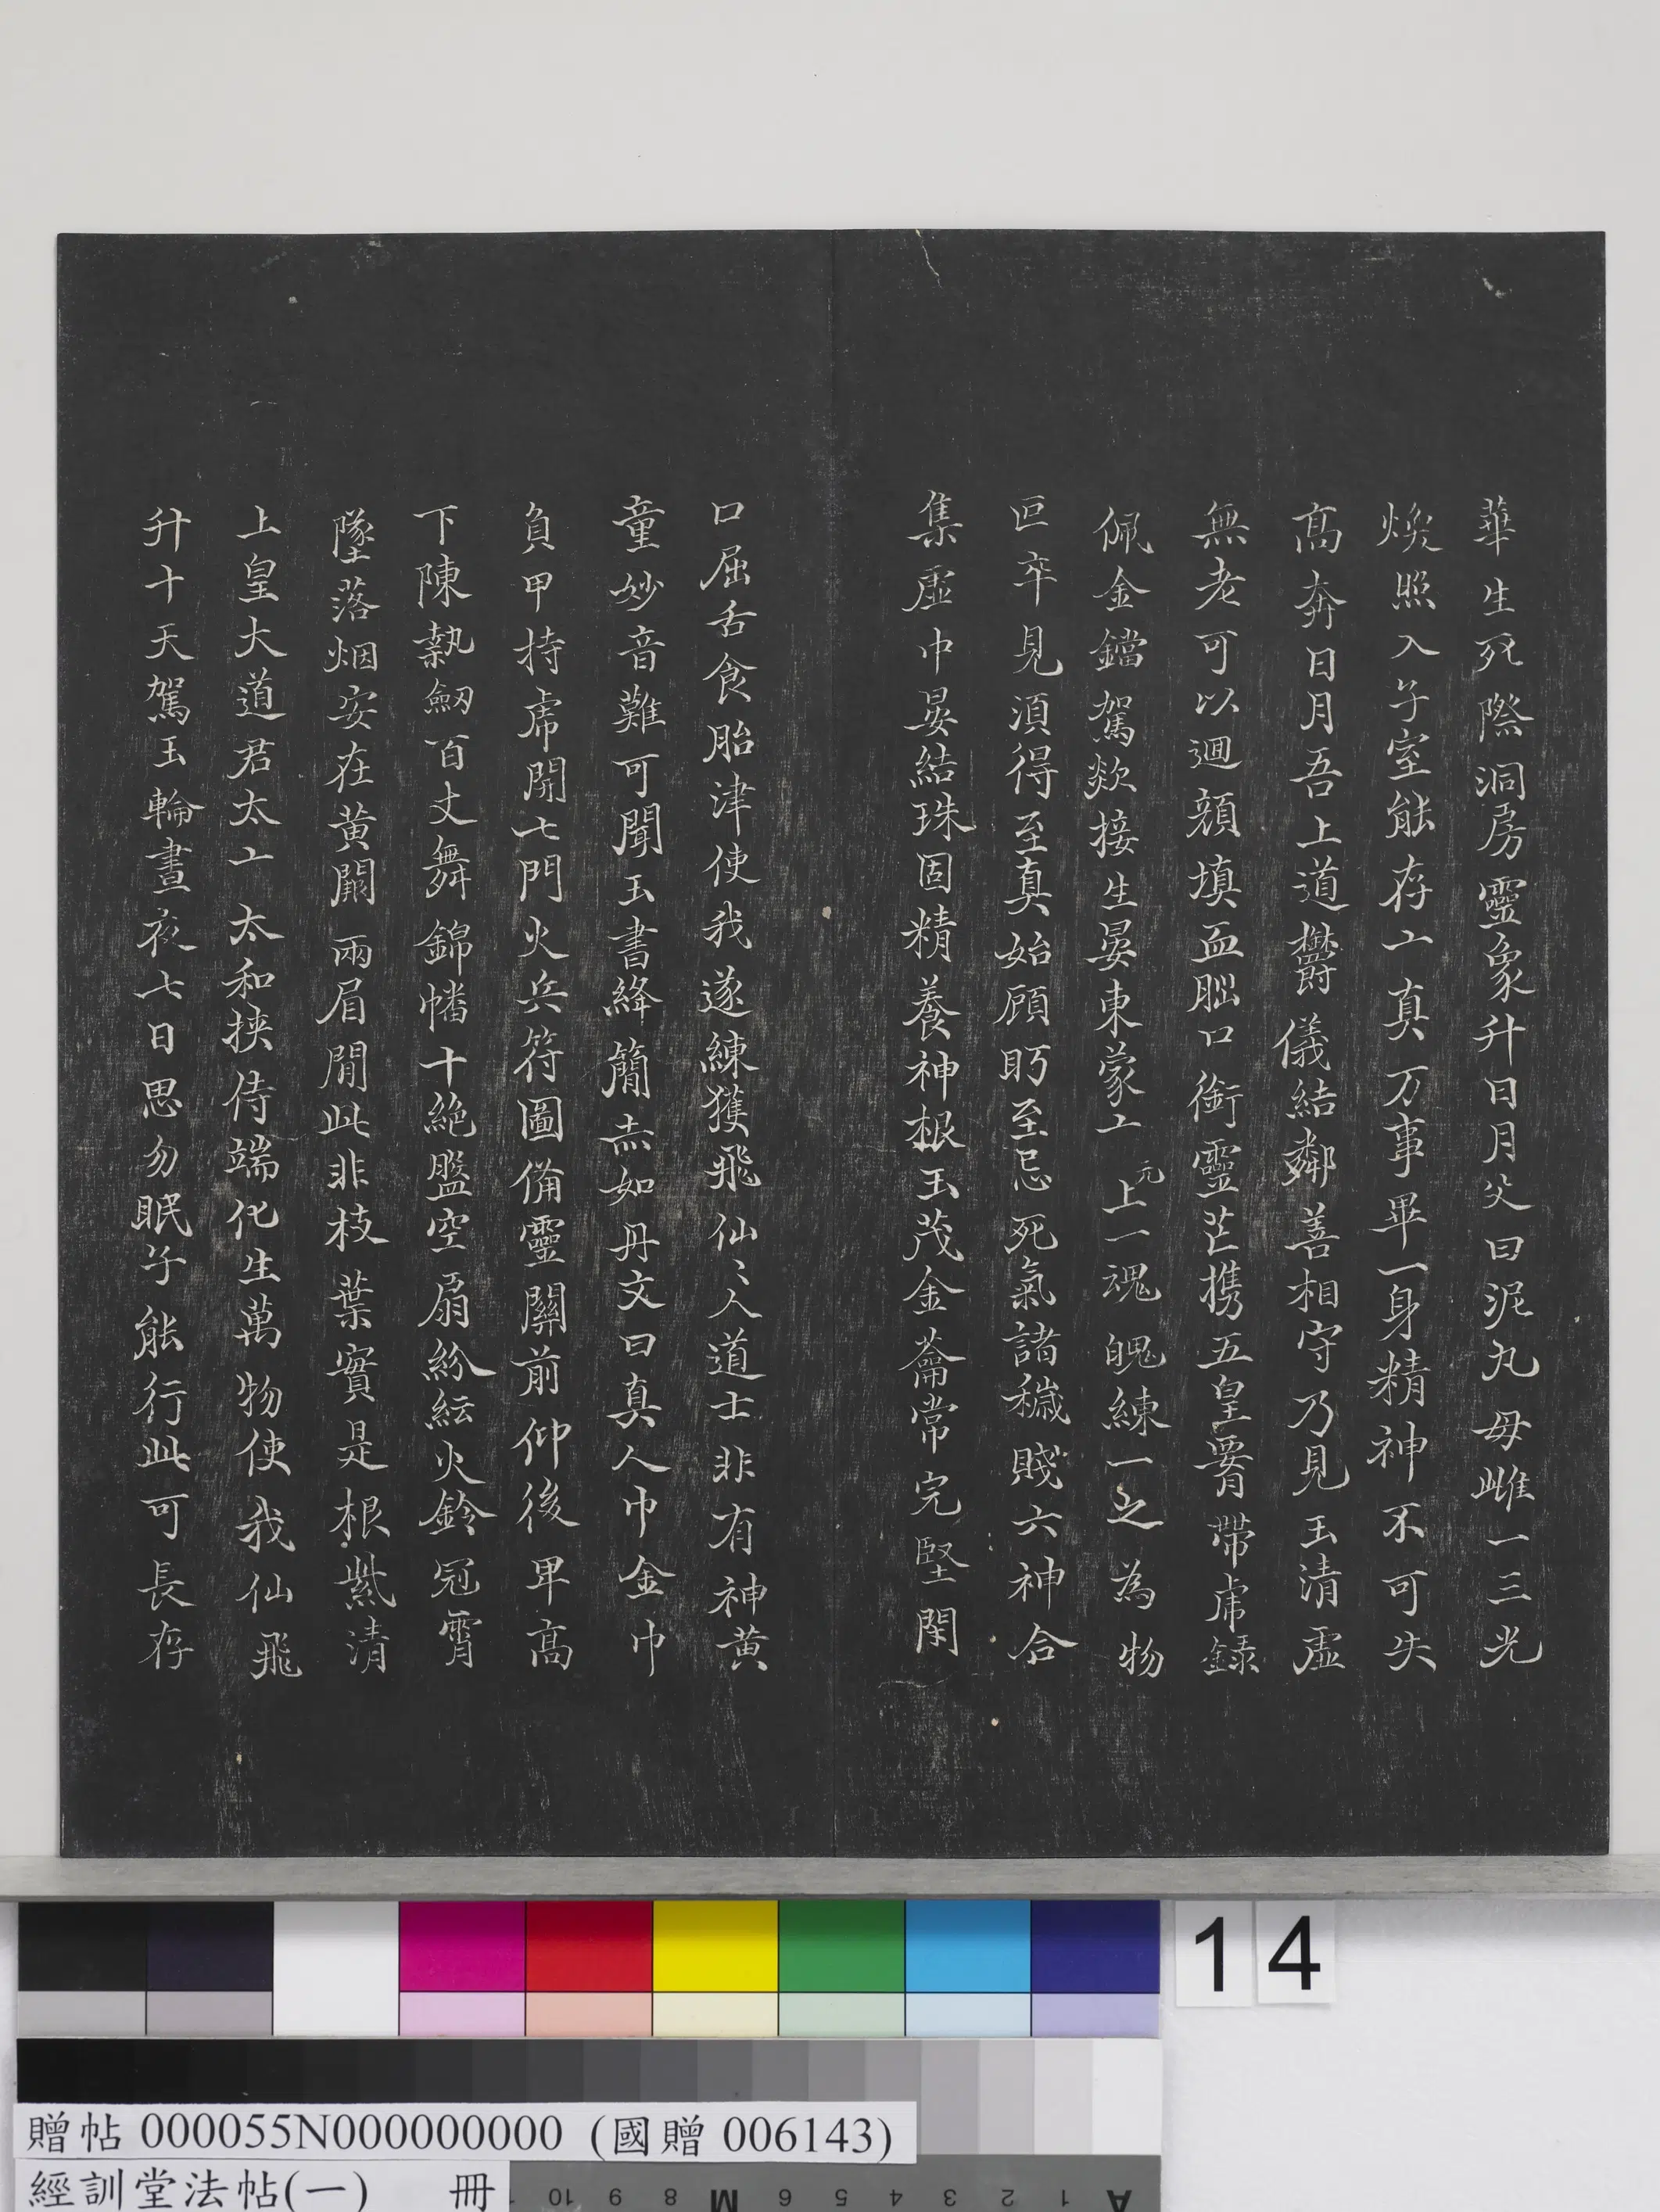 華生死際洞房靈象升日月父曰泥丸母雌一三光
煥照入子室能存亠真万事畢一身精神不可失
高奔日月吾上道欝儀結鄰善相守乃見玉清虛
無老可以迴顔填血腦口銜靈芒携五皇要帶虎錄
佩金鐺駕欻接生晏東蒙亠元上一魂魄練一之為物
叵卒見湏得至真始顧眄至忌死氣諸穢賤六神合
集虛中晏結珠固精養神根玉茂金籥常完堅閇
口屈舌食胎津使我遂練獲飛仙〻人道士非有神黄
童妙音難可聞玉書絳簡赤如丹文曰真人巾金巾
負甲持虎開七門火兵符圖備靈關前仰後卑高
下陳執劒百丈舞錦幡十絶盤空扇紛紜火鈴冠霄
墜落烟安在黄闕兩眉間此非枝葉實是根紫清
上皇大道君太亠太和挾侍端化生萬物使我仙飛
升十天駕玉輪晝夜七日思勿眠子能行此可長存
14
贈帖 000055N000000000 (國贈 006143)
經訓堂法帖(一) 冊
10 9 8 M 6 5 4 3 2 1 A